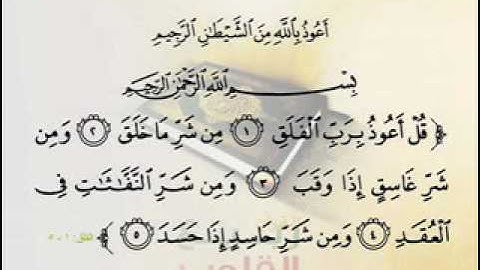 أَعُوذُ بِاللَّهِ مِنَ الشَّيْطَانِ الرَّجِيمِ
بِسْمِ اللَّهِ الرَّحْمَٰنِ الرَّحِيمِ
﴿ قُلْ أَعُوذُ بِرَبِّ الْفَلَقِ ۝١ مِن شَرِّ مَا خَلَقَ ۝٢ وَمِن
شَرِّ غَاسِقٍ إِذَا وَقَبَ ۝٣ وَمِن شَرِّ النَّفَّاثَاتِ فِي
الْعُقَدِ ۝٤ وَمِن شَرِّ حَاسِدٍ إِذَا حَسَدَ ۝٥ ﴾
القلوب